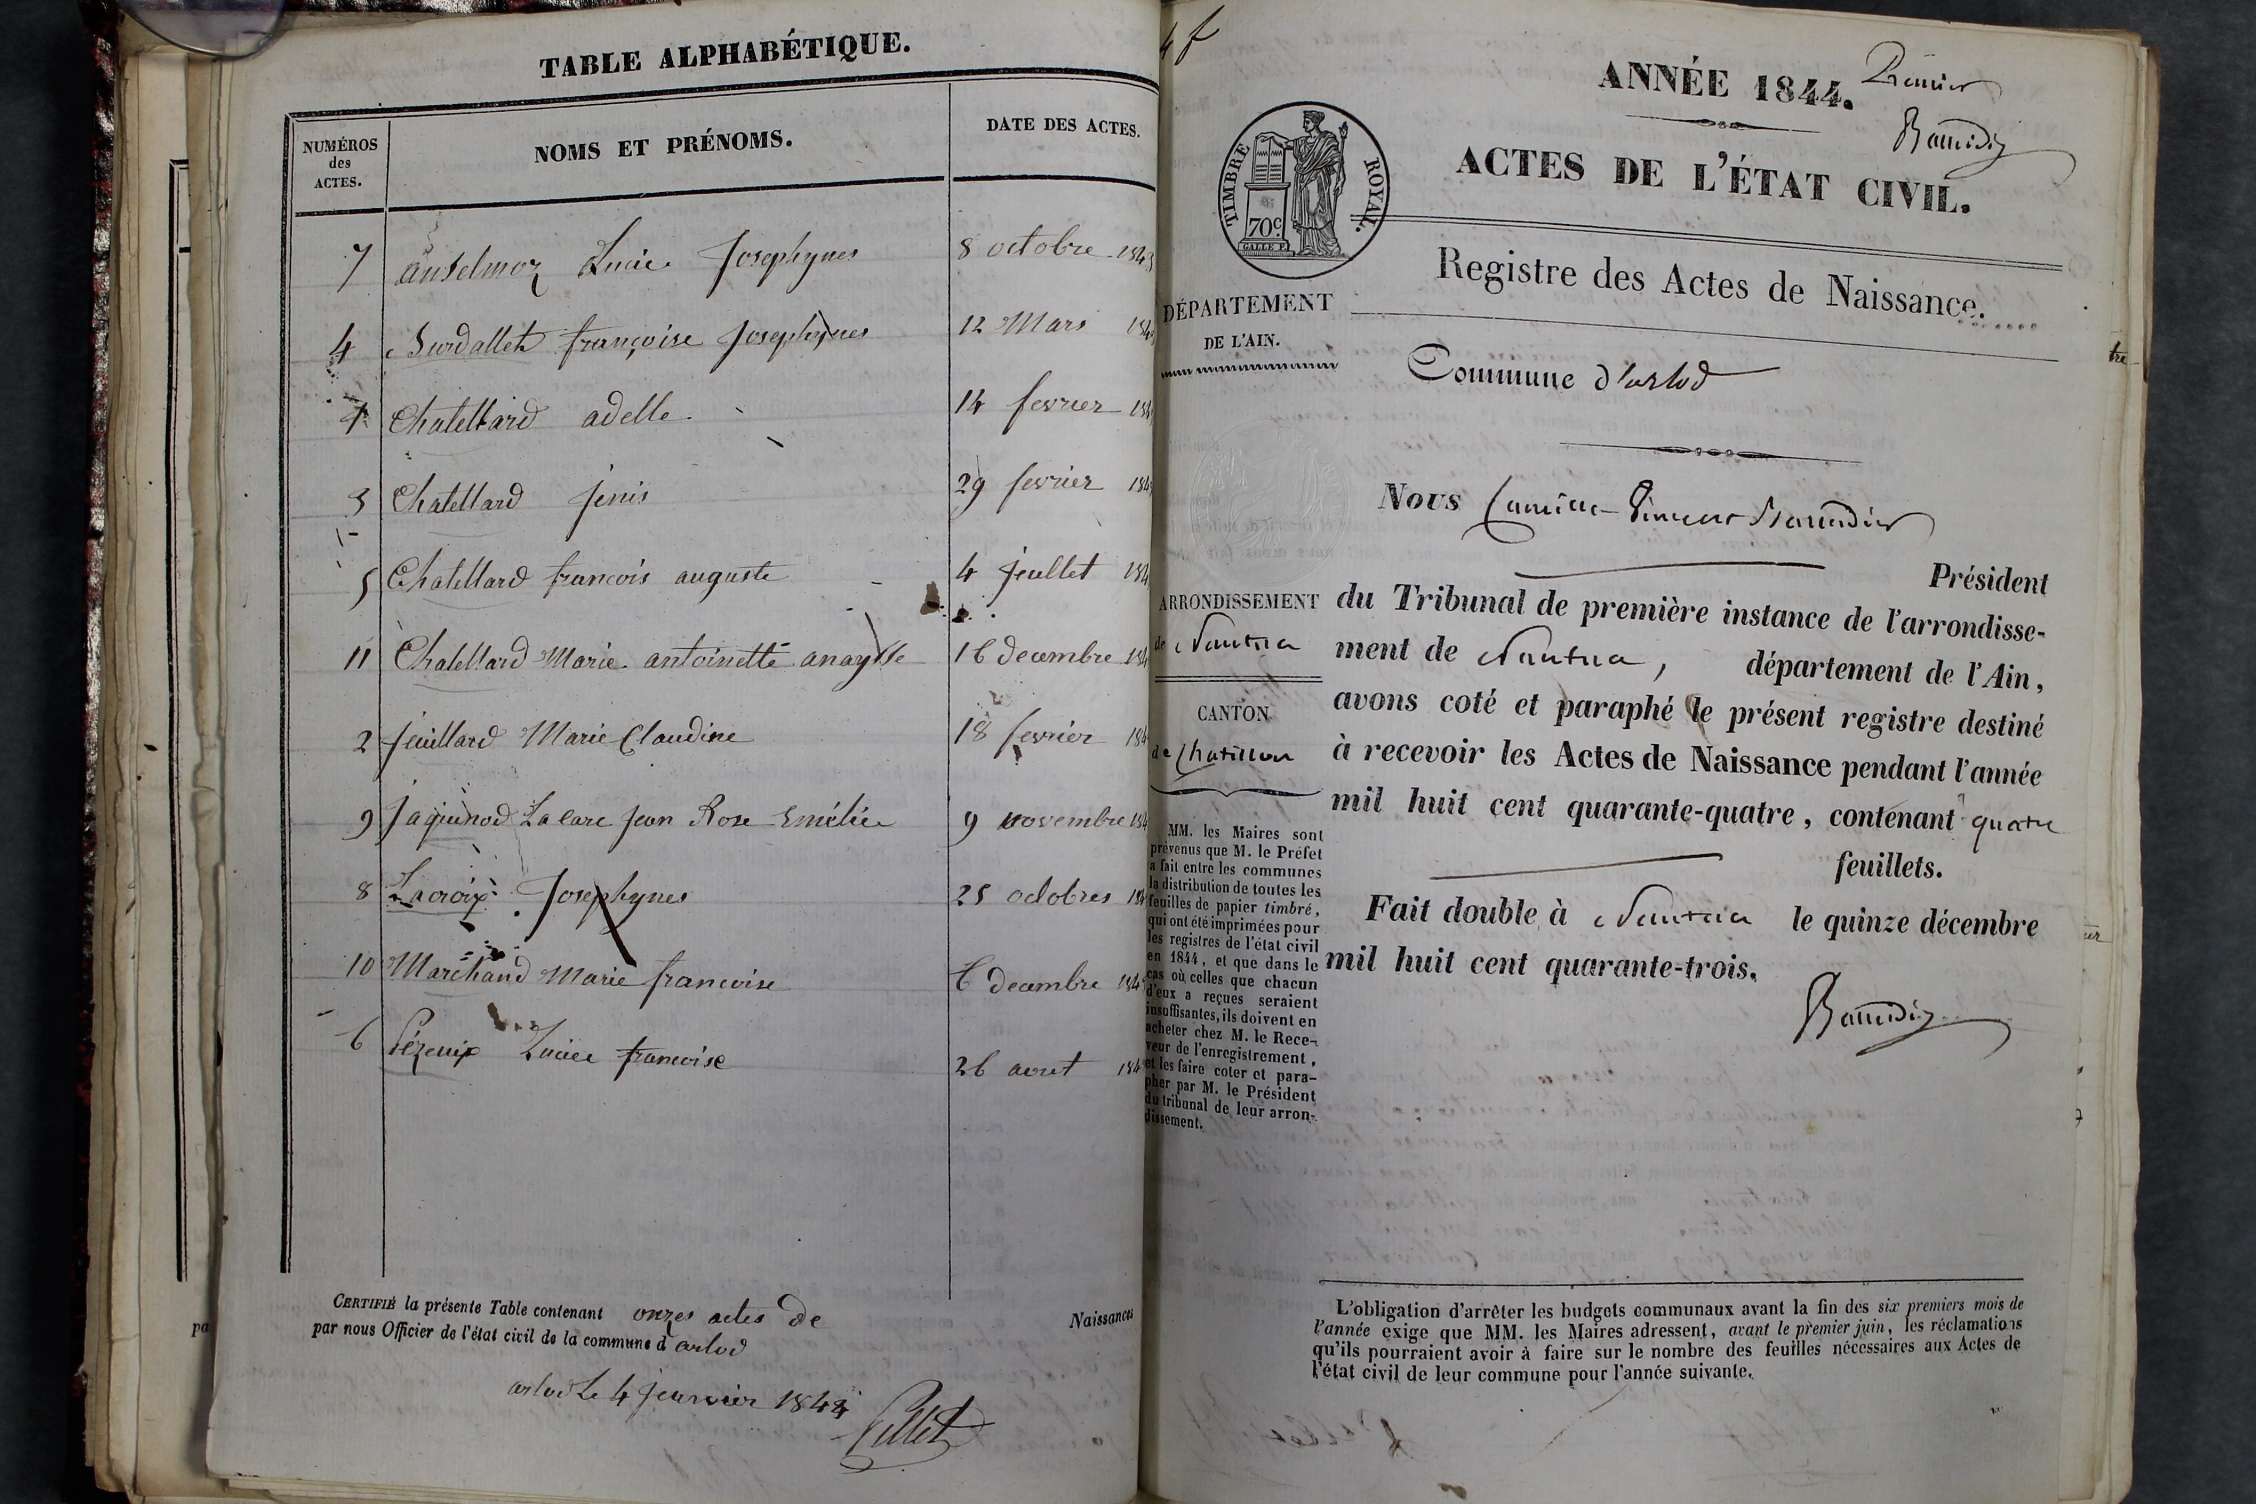 TABLE ALPHABÉTIQUE.
NUMÉROS des ACTES. NOMS ET PRÉNOMS. DATE DES ACTES.
7 anselmoz Lucie Josephynes 8 octobre 1843
4 Surdallet françoise Josephynes 12 Mars
Chatellard adelle 14 fevrier
3 Chatellard jenis 29 fevrier
5 Chatellard francois auguste 4 jeullet
11 Chatellard Marie antoinette 16 decembre
2 feuillard Marie Claudine 18 fevrier
9 Jaquinod Jean Rose Emélie 9 novembre
8 Lacroix Josephynes 25 octobres
10 Marchand Marie francoise 6 decembre
6 Pézeuix Lucie francoise 26 aout
CERTIFIÉ la présente Table contenant onzes actes de Naissances
par nous Officier de l'état civil de la commune d'arlod
arlod Le 4 jeanvier 1844
Pillet
4 f
ANNÉE 1844.
Premier
Baudin
ACTES DE L'ÉTAT CIVIL.
TIMBRE ROYAL.
70c
Registre des Actes de Naissance.
DÉPARTEMENT
DE L'AIN.
Commune d'arlod
Nous
Président
ARRONDISSEMENT
de Nantua
CANTON
de Chatillon
du Tribunal de première instance de l'arrondisse-
ment de Nantua, département de l'Ain,
avons coté et paraphé le présent registre destiné
à recevoir les Actes de Naissance pendant l'année
mil huit cent quarante-quatre, contenant quatre
feuillets.
Fait double à Nantua le quinze décembre
mil huit cent quarante-trois.
MM. les Maires sont
prévenus que M. le Préfet
a fait entre les communes
la distribution de toutes les
feuilles de papier timbré,
qui ont été imprimées pour
les registres de l'état civil
en 1844, et que dans le
cas où celles que chacun
d'eux a reçues seraient
insuffisantes, ils doivent en
acheter chez M. le Rece-
veur de l'enregistrement,
et les faire coter et para-
pher par M. le Président
du tribunal de leur arron-
dissement.
L'obligation d'arrêter les budgets communaux avant la fin des six premiers mois de
l'année exige que MM. les Maires adressent, avant le premier juin, les réclamations
qu'ils pourraient avoir à faire sur le nombre des feuilles nécessaires aux Actes de
l'état civil de leur commune pour l'année suivante.